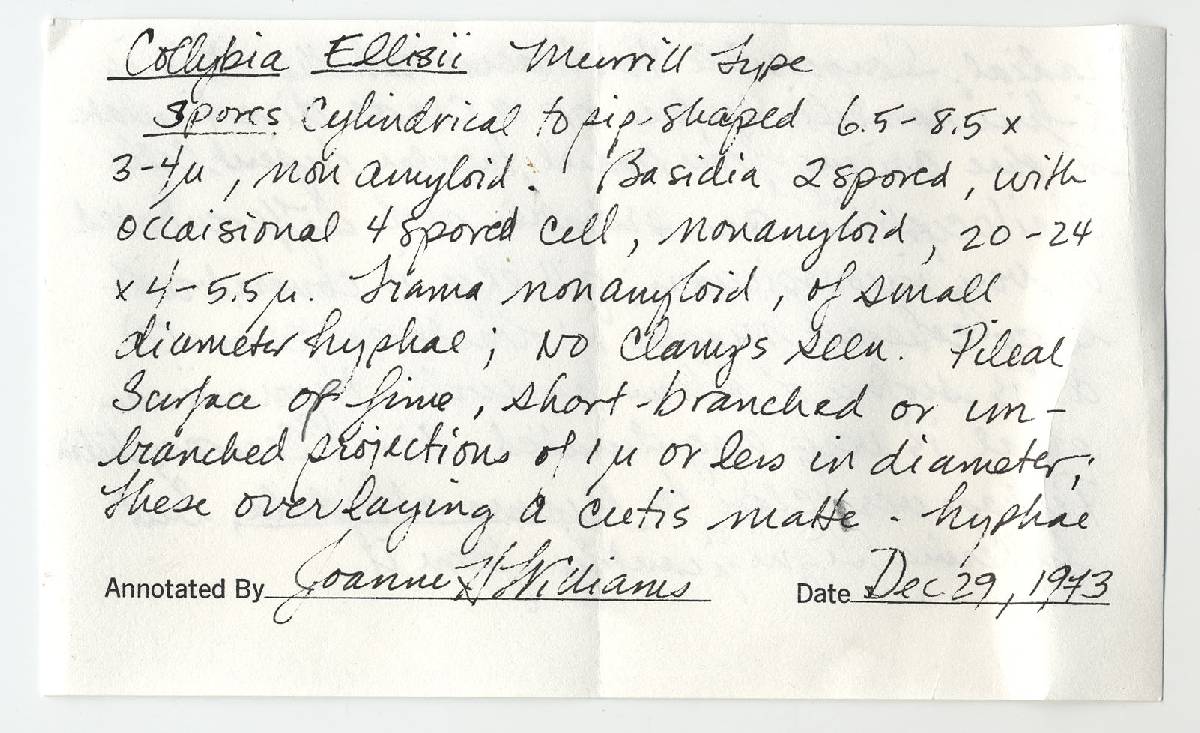 Collybia Ellisii Murrill Type
Spores Cylindrical to pip-shaped 6.5-8.5 x
3-4µ, non amyloid. Basidia 2 spored, with
occaisional 4 spored cell, nonamyloid, 20-24
x 4-5.5µ. Trama nonamyloid, of small
diameter hyphae; No Clamps seen. Pileal
Surface of fine, short-branched or un-
branched projections of 1µ or less in diameter;
these overlaying a cutis matte - hyphae
Annotated By Joanne H Williams Date Dec 29, 1973